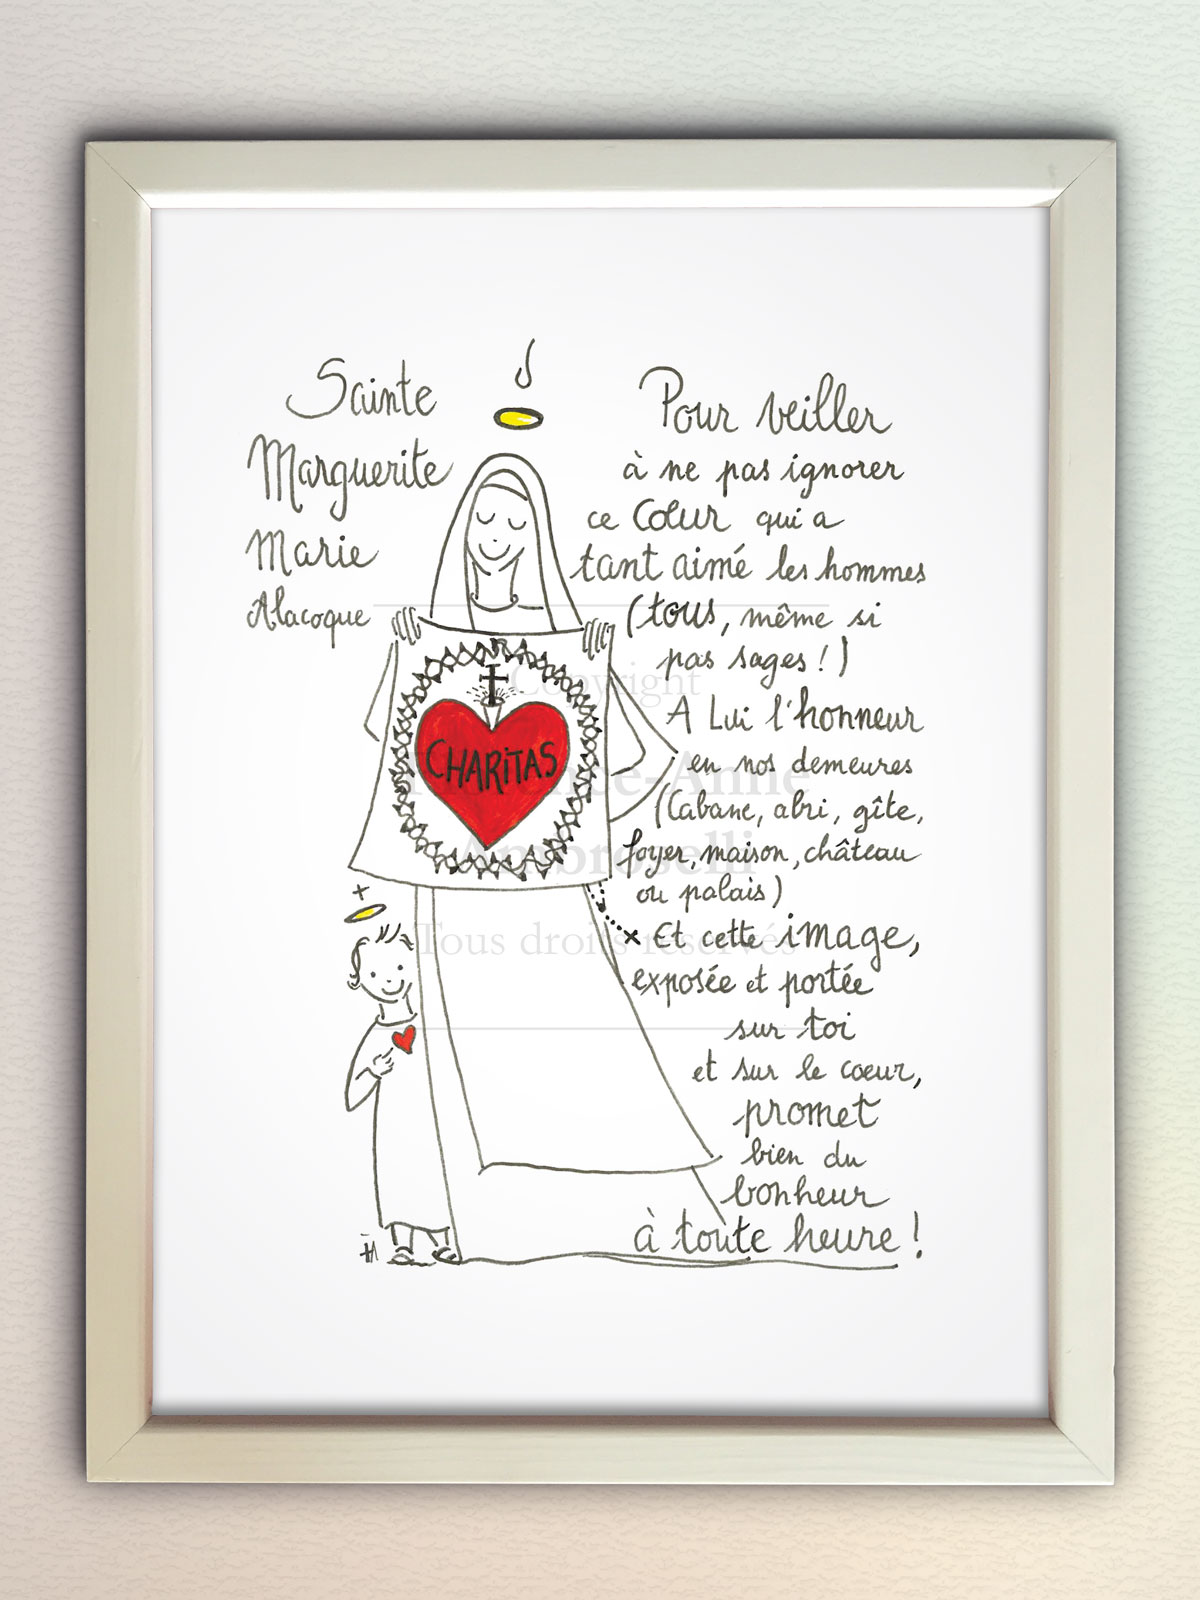 Sainte
Marguerite
Marie
Alacoque
CHARITAS
Pour veiller
à ne pas ignorer
ce Cœur qui a
tant aimé les hommes
(tous, même si
pas sages !)
A Lui l'honneur
en nos demeures
(Cabane, abri, gîte,
foyer, maison, château
ou palais)
Et cette image,
exposée et portée
sur toi
et sur le coeur,
promet
bien du
bonheur
à toute heure !
Copyright
Ambroselli
Tous droits réservés